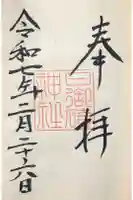 奉拝
神社
令和七年二月二十六日